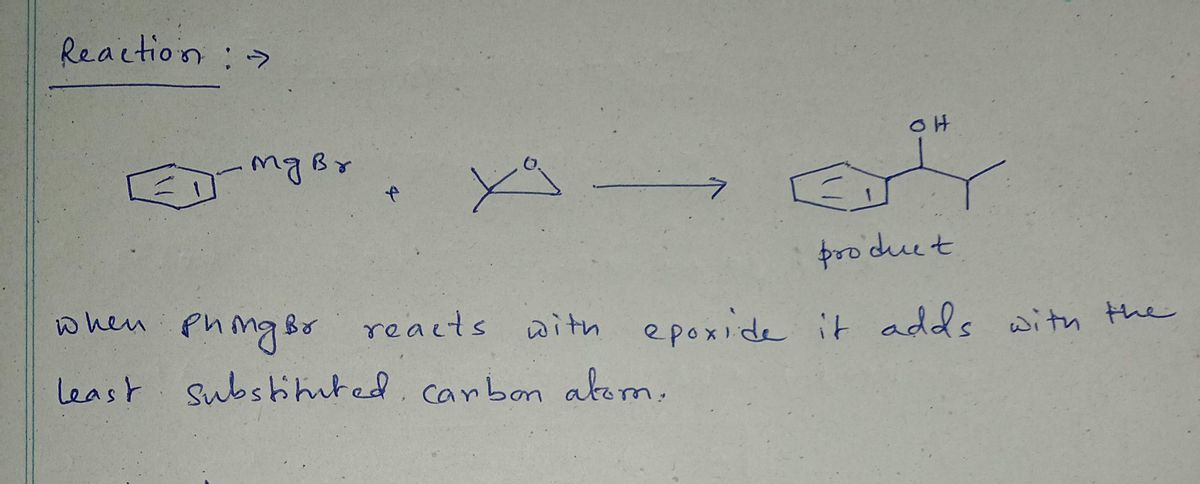 Reaction : →
OH
MgBr
+
O
product
when PhMgBr reacts with epoxide it adds with the
least substituted carbon atom.